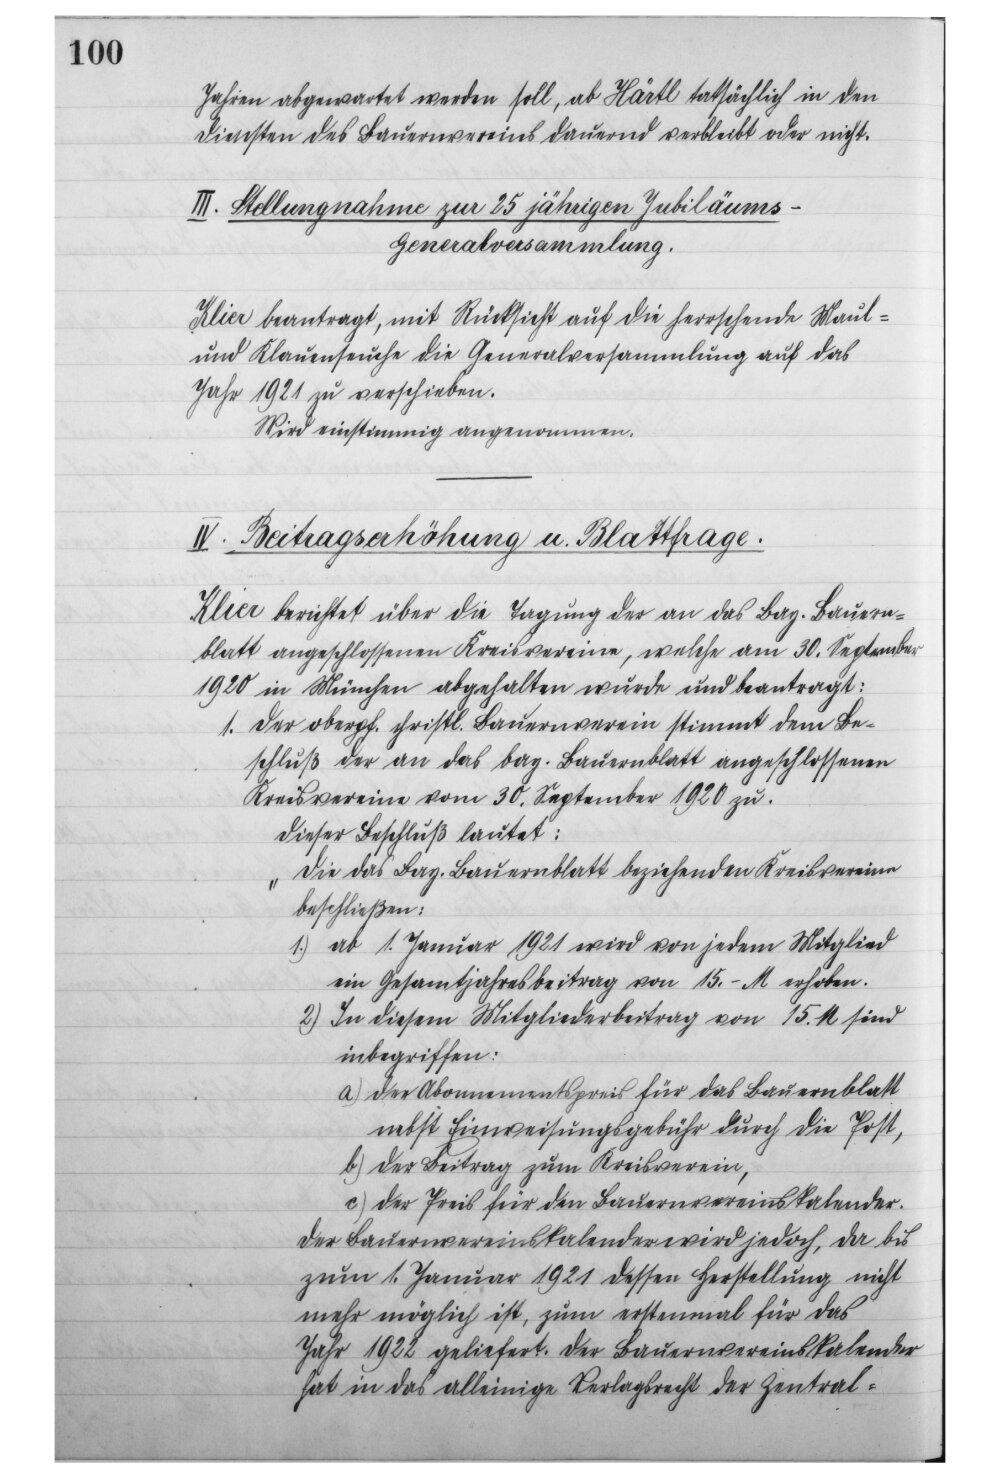 100
Jahren abgewartet werden soll, ob Härtl tatsächlich in den
Diensten des Bauernvereins dauernd verbleibt oder nicht.
III. Stellungnahme zur 25 jährigen Jubiläums-
Generalversammlung.
Klier beantragt, mit Rücksicht auf die herrschende Maul-
und Klauenseuche die Generalversammlung auf das
Jahr 1921 zu verschieben.
Wird einstimmig angenommen.
IV. Beitragserhöhung u. Blattfrage.
Klier berichtet über die Tagung der an das Bay. Bauern-
blatt angeschlossenen Kreisvereine, welche am 30. September
1920 in München abgehalten wurde und beantragt:
1. Der oberpf. christl. Bauernverein stimmt dem Be-
schluß der an das bay. Bauernblatt angeschlossenen
Kreisvereine vom 30. September 1920 zu.
Dieser Beschluß lautet:
„Die das Bay. Bauernblatt beziehenden Kreisvereine
beschließen:
1.) ab 1. Januar 1921 wird von jedem Mitglied
ein Gesamtjahresbeitrag von 15.- M erhoben.
2) In diesem Mitgliederbeitrag von 15. M sind
inbegriffen:
a) der Abonnementspreis für das Bauernblatt
nebst Einweisungsgebühr durch die Post,
b) der Beitrag zum Kreisverein,
c) der Preis für den Bauernvereinskalender.
Der Bauernvereinskalender wird jedoch, da bis
zum 1. Januar 1921 dessen Herstellung nicht
mehr möglich ist, zum erstenmal für das
Jahr 1922 geliefert. Der Bauernvereinskalender
hat in das alleinige Verlagsrecht der Zentral-